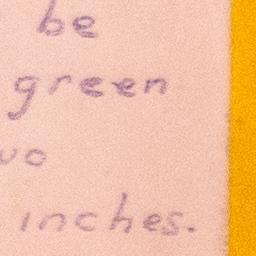 be
green
inches.